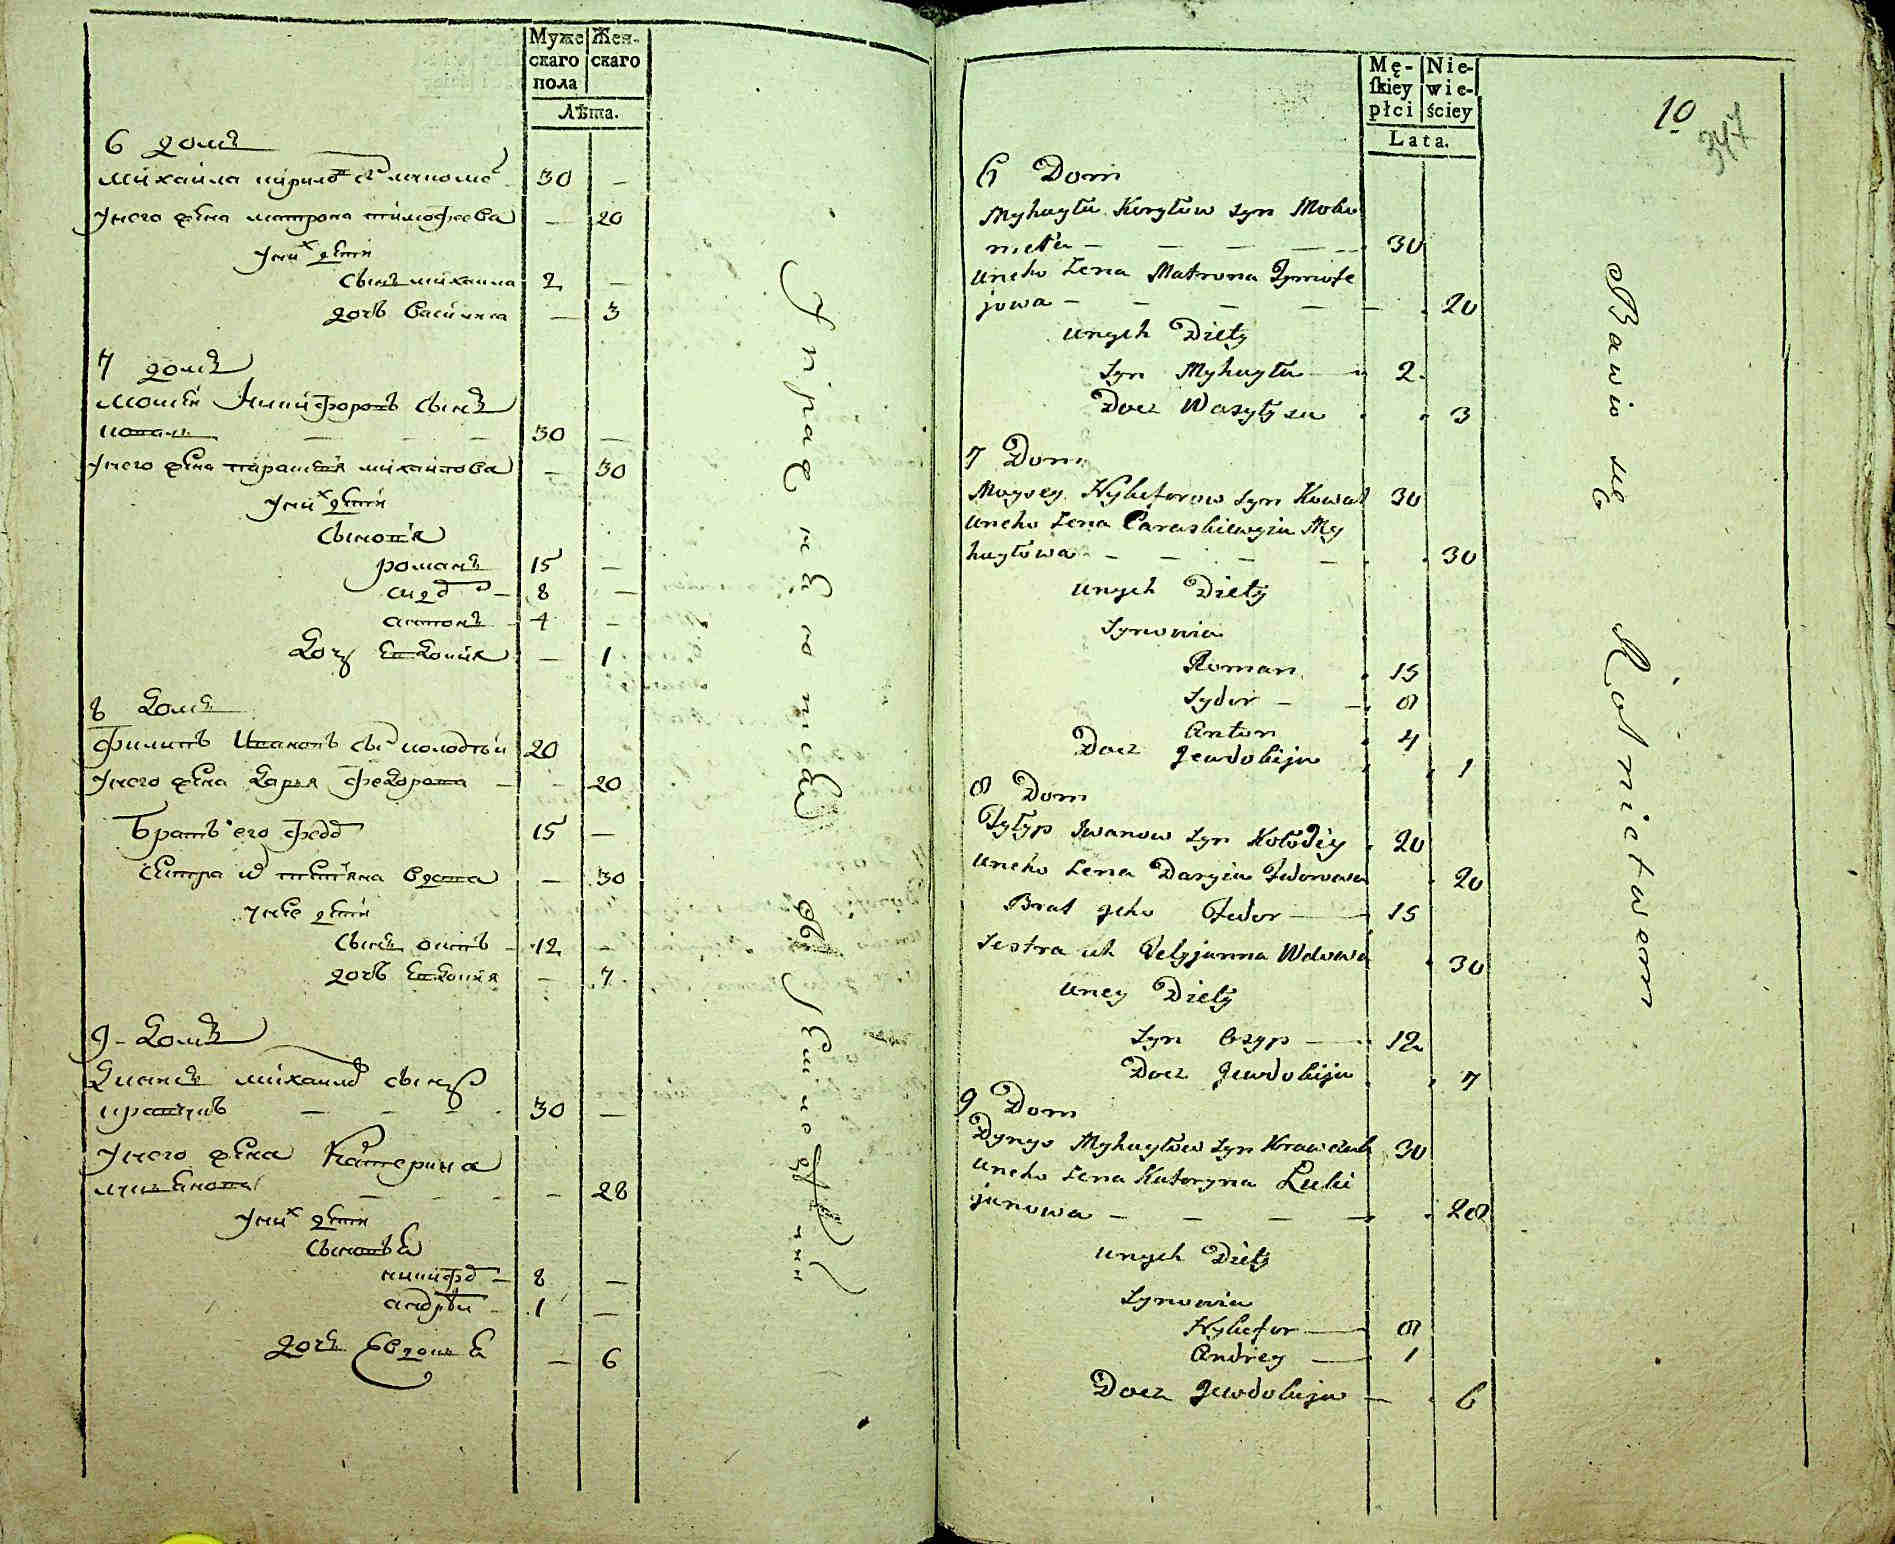 Муже
скаго
пола
Жен-
скаго
Лѣта.
6 домъ
михаила
30 —
у него жена матрона тимофеева — 20
у них дети
сынъ михаила 2 —
дочь василиса — 3
7 домъ
моисей никифоровъ сынъ
коваль — — — 30 —
у него жена параскевия михайлова — 30
у них дети
сыновя
романъ 15 —
сидор — 8 —
антонъ 4 —
дочь евдокия — 1
8 домъ
филипъ ивановъ сын колодзей 20
у него жена дария федорова — — 20
братъ его федор 15 —
сестра их татияна вдова — 30
у нее дети
сынъ осипъ — 12 —
дочь евдокия — 7
9 домъ
михайлов сынъ
кравчукъ — — — 30 —
у него жена катерина
лукьянова — — — — 28
у них дети
сыновья
никифор — 8 —
андрей — 1 —
дочь евдокия — 6
Упражняются в хлебопашестве
Mę-
skiey
płci
Nie-
wie-
ściey
Lata.
10
347
6 Dom
Myhayła Koryłow syn
— — — — 30
uneho żena Matrona Tymofe
jowa — — — — 20
unych Diety
syn Myhayła — 2
Docz Wasyłysa 3
7 Dom
Moysey Nykeforow syn Kowal 30
uneho żena Paraskiewyja My
hayłowa — — — — 30
unych Diety
synowia
Roman 15
Sydor — — 8
Anton 4
Docz Jewdokija 1
8 Dom
Fyłyp Iwanow syn Kołodiy 20
uneho żena Daryia Fedorowa 20
Brat jeho Fedor — 15
sestra ich Tetyjanna Wdowa 30
uney Diety
syn Osyp — 12
Docz Jewdokija 7
9 Dom
Dynys Myhayłow syn Krawczuk 30
uneho żena Kateryna Łuki
janowa — — — — 28
unych Diety
synowia
Nykefor — 8
Andrey — 1
Docz Jewdokija — 6
Bawio się Rolnictwem